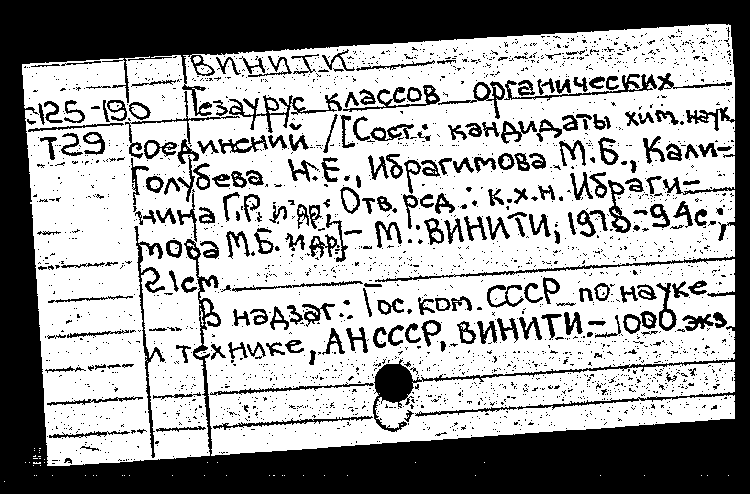 ВИНИТИ
с125-190 Тезаурус классов органических
Т29 соединений /[Сост.: кандидаты хим. наук
Голубева Н.Е., Ибрагимова М.Б., Кали-
нина Г.Р. и др; Отв. ред.: к.х.н. Ибраги-
мова М.Б. и др]. - М.: ВИНИТИ, 1978. - 94с.;
21см.
В надзаг.: Гос. ком. СССР по науке
и технике, АН СССР, ВИНИТИ. - 1000 экз